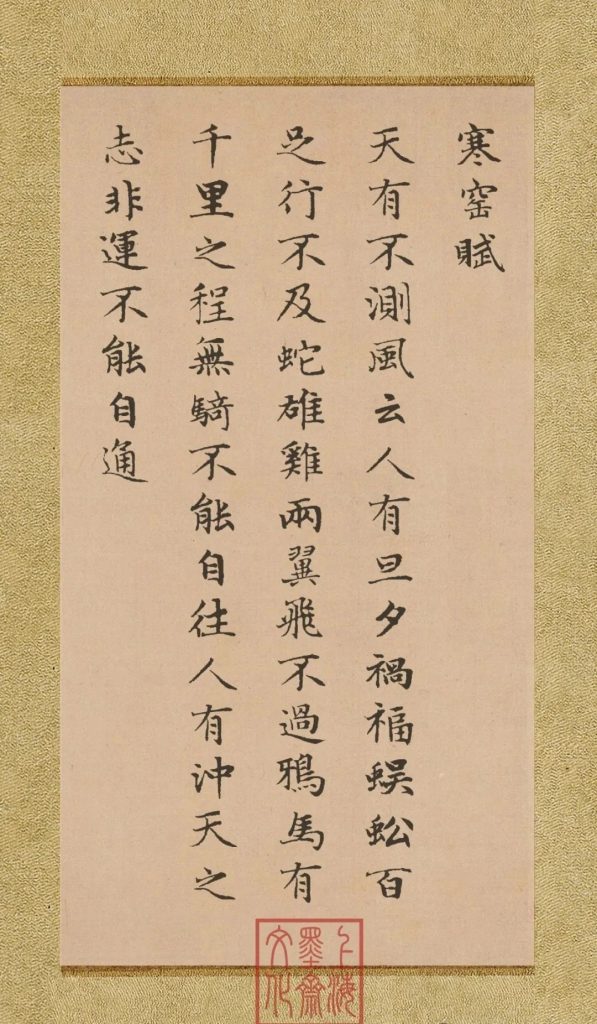 寒窑賦
天有不測風云人有旦夕禍福蜈蚣百
足行不及蛇雄雞兩翼飛不過鴉馬有
千里之程無騎不能自往人有沖天之
志非運不能自通
上海
墨齋
文化